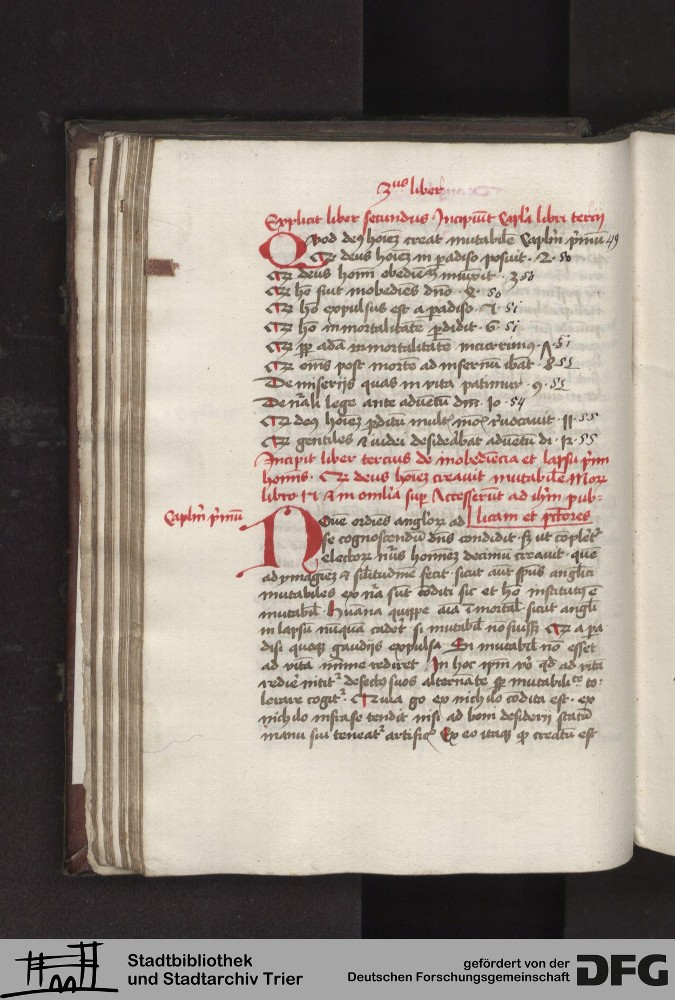 3us liber
Explicit liber secundus Incipiūt Capl'a libri tercij
Quod deꝰ hoīez creat mutabilē Caplm p'mū 49
Qz deus hoīez in padiso posuit · 2 · 50
Qz deus homī obedienc̄ iniūxit · 3 50
Qz hō fuit inobediēs dn̄o · 4 · 50
Qz hō expulsus est a padiso · 5 · 51
Qz hō inmortalitatē pdidit · 6 · 51
Qz pp adā inmortalitatē incurrimꝰ · 7 · 51
Qz om̄s post mortē ad infernū ibāt · 8 51
De miserijs quas in vita patimur · 9 · 51
De nāli lege ante aduentū dnī · 10 · 54
Qz deꝰ hoīez pditū mult' mo' reuocauit · 11 · 55
Qz gentiles & iudei desiderabāt aduentū di · 12 · 55
Incipit liber tercius de inobediencia et lapsu p'mi
hominis · Qz deus hoīez creauit mutabile Mor
libro 14 & in omīlia sup Accesserūt ad ihm pub-
licani et pctores
Caplm p'mū
Noue ordiēs anglor ad
se cognoscendū dn̄s condidit · sz ut cōplet'
elector nūs hominez decimū creauit · quē
ad ymaginez & silitudinē fecit · sicut aut sp̄us anglici
mutabiles ex nā sūt cōditi sic et hō institutꝰ ē
mutabil' Humana quippe aīa īmortal' sicut angli
in lapsū nūquā cadet' si mutabil' nō fuiss; Qz a pa
disi quoqz gaudijs expulsa Si mutabil' nō esset
ad vitā mīme rediret In hoc ip̄m vō qd' ad vitā
redire nitit' defectꝰ suos alternāte sp mutabilitᵗᵉ to-
lerare cogit' · Quia g̊o ex nichilo cōdita est · ex
nichilo in se ipse tendit nisi ad boni desiderij statū
manu sui teneat' artific' Ex eo itaqz qp creatū est
Stadtbibliothek
und Stadtarchiv Trier
gefördert von der
Deutschen Forschungsgemeinschaft
DFG